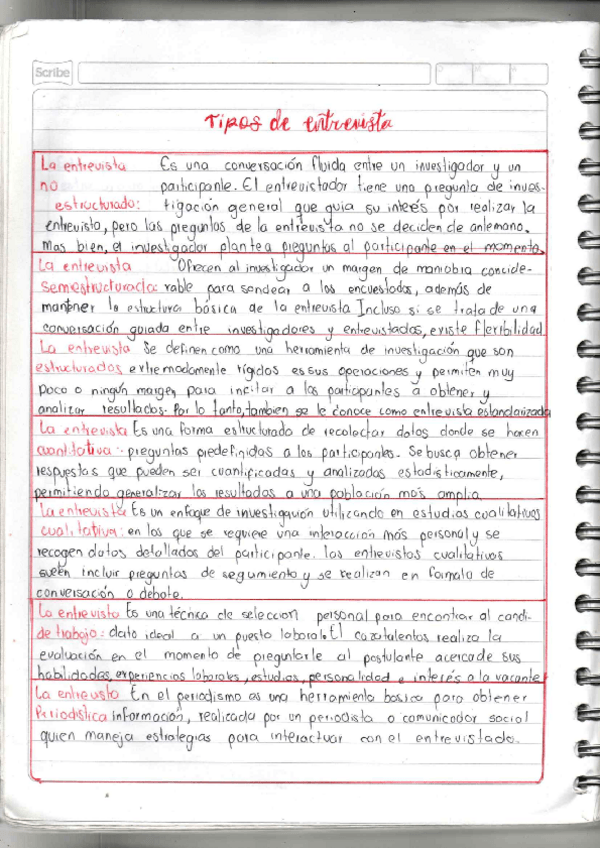 Scribe
Tipos de entrevista
La entrevista Es una conversación fluida entre un investigador y un
no participante. El entrevistador tiene una pregunta de inves-
estructurado: tigación general que guia su interés por realizar la
entrevista, pero las preguntas de la entrevista no se deciden de antemano.
Mas bien, el investigador plantea preguntas al participante en el momento.
La entrevista Ofrecen al investigador un margen de maniobra concide-
semiestructurada: rable para sondear a los encuestados, además de
mantener la estructura básica de la entrevista Incluso si se trata de una
conversación guiada entre investigadores y entrevistados, existe flexibilidad
La entrevista Se definen como una herramienta de investigación que son
estructurados extremadamente rígidos es sus operaciones y permiten muy
poco o ningún margen para incitar a los participantes a obtener y
analizar resultados. Por lo tanto, tambien se le conoce como entrevista estandarizada
La entrevista Es una forma estructurado de recolectar datos donde se hacen
cuantitativa: preguntas predefinidas a los participantes. Se busca obtener
respuestas que pueden ser cuantificadas y analizadas estadísticamente,
permitiendo generalizar los resultados a una población más amplia
La entrevista Es un enfoque de investigación utilicando en estudios cualitativos
cualitativa: en los que se requiere una interacción más personal y se
recogen datos detallados del participante. las entrevistas cualitativas
suelen incluir preguntas de seguimiento y se realizan en formato de
conversación o debate.
La entrevista Es una técnica de selección personal para encontrar al candi-
de trabajo: dato ideal a un puesto laboral. El cazatalentos realiza la
evaluación en el momento de preguntarle al postulante acerca de sus
habilidades, experiencias laborales, estudios, personalidad e interés a la vacante
La entrevista En el periodismo es una herramienta básica para obtener
Periodística información, realizada por un periodista o comunicador social
quien maneja estrategias para interactuar con el entrevistado.